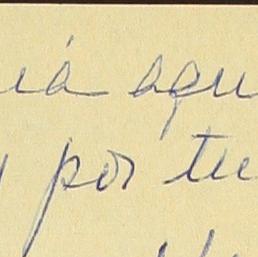 iá aqu
y por tu